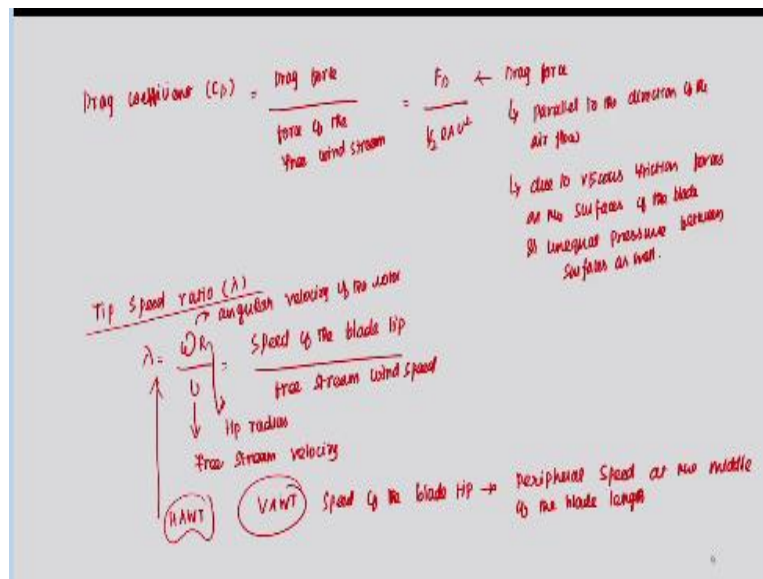 Drag coefficient (CD) = Drag force / force of the free wind stream = FD / ½ ρAU² ← Drag force
↳ Parallel to the direction of the air flow
↳ due to viscous friction forces
at the surfaces of the blade
& unequal pressure between
surfaces as well.
Tip Speed ratio (λ)
→ angular velocity of the rotor
λ = ωR / U = Speed of the blade tip / free stream wind speed
Tip radius
free stream velocity
HAWT VAWT Speed of the blade tip → Peripheral Speed at the middle
of the blade length